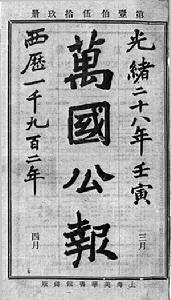 第壹佰伍拾玖册
光緒二十八年壬寅
三月
萬國公報
西歷一千九百二年
四月
上海美華書館鑄版